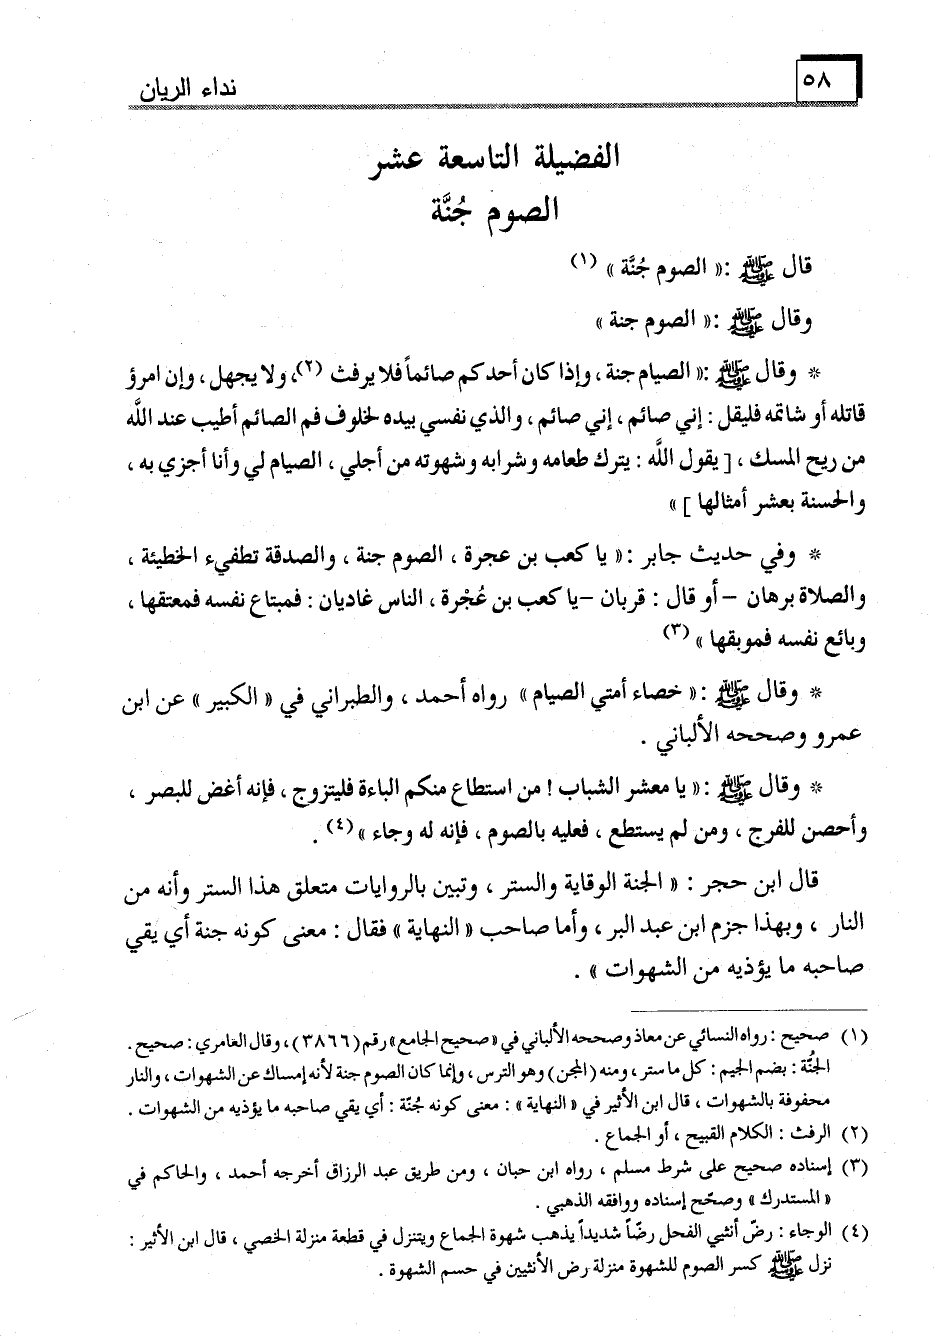 ٥٨
نداء الريان
الفضيلة التاسعة عشر
الصوم جُنَّة
قال ﷺ :« الصوم جُنَّة » (١)
وقال ﷺ :« الصوم جنة »
* وقال ﷺ :« الصيام جنة ، وإذا كان أحدكم صائماً فلا يرفث (٢)، ولا يجهل ، وإن امرؤ
قاتله أو شاتمه فليقل : إني صائم ، إني صائم ، والذي نفسي بيده لخلوف فم الصائم أطيب عند اللَّه
من ريح المسك ، [ يقول اللَّه : يترك طعامه وشرابه وشهوته من أجلي ، الصيام لي وأنا أجزي به ،
والحسنة بعشر أمثالها ] »
* وفي حديث جابر :« يا كعب بن عجرة ، الصوم جنة ، والصدقة تطفيء الخطيئة ،
والصلاة برهان – أو قال : قربان – يا كعب بن عُجْرة ، الناس غاديان : فمبتاع نفسه فمعتقها ،
وبائع نفسه فموبقها » (٣)
* وقال ﷺ :« خصاء أمتي الصيام » رواه أحمد ، والطبراني في « الكبير » عن ابن
عمرو وصححه الألباني .
* وقال ﷺ :« يا معشر الشباب ! من استطاع منكم الباءة فليتزوج ، فإنه أغض للبصر ،
وأحصن للفرج ، ومن لم يستطع ، فعليه بالصوم ، فإنه له وجاء » (٤) .
قال ابن حجر : « الجنة الوقاية والستر ، وتبين بالروايات متعلق هذا الستر وأنه من
النار ، وبهذا جزم ابن عبد البر ، وأما صاحب « النهاية » فقال : معنى كونه جنة أي يقي
صاحبه ما يؤذيه من الشهوات » .
(١) صحيح : رواه النسائي عن معاذ وصححه الألباني في « صحيح الجامع» رقم (٣٨٦٦) ، وقال العامري : صحيح .
الجُنَّة : بضم الجيم : كل ما ستر ، ومنه (المجن) وهو الترس ، وإنما كان الصوم جنة لأنه إمساك عن الشهوات ، والنار
محفوفة بالشهوات ، قال ابن الأثير في « النهاية » : معنى كونه جُنّة : أي يقي صاحبه ما يؤذيه من الشهوات .
(٢) الرفث : الكلام القبيح ، أو الجماع .
(٣) إسناده صحيح على شرط مسلم ، رواه ابن حبان ، ومن طريق عبد الرزاق أخرجه أحمد ، والحاكم في
« المستدرك » وصحّح إسناده ووافقه الذهبي .
(٤) الوجاء : رضّ أنثيي الفحل رضّاً شديداً يذهب شهوة الجماع ويتنزل في قطعة منزلة الخصي ، قال ابن الأثير :
نزل ﷺ كسر الصوم للشهوة منزلة رض الأنثيين في حسم الشهوة .